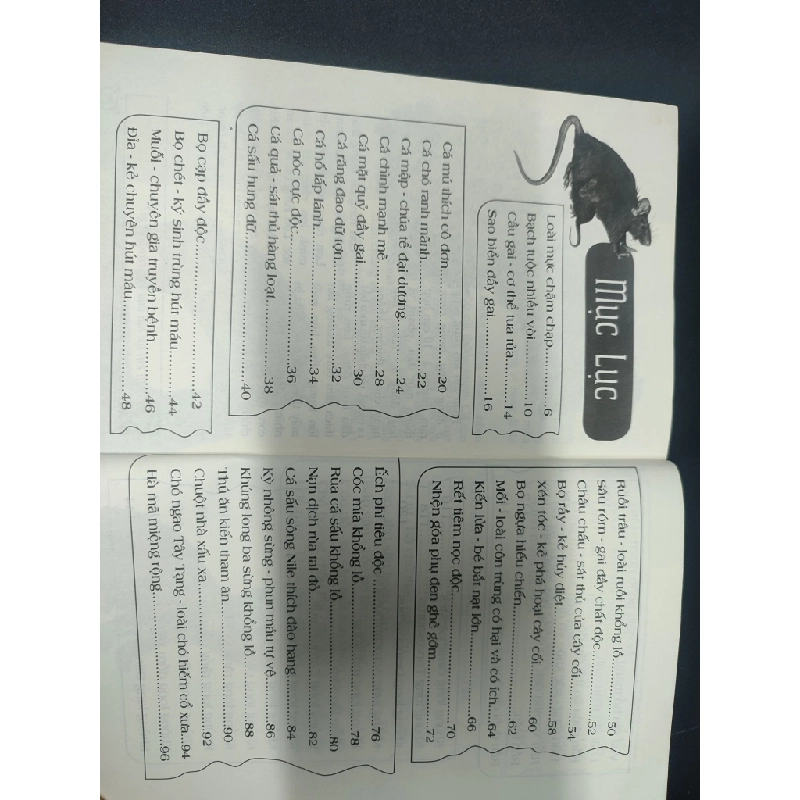 Mục Lục
Loài mực chậm chạp..................6
Bạch tuộc nhiều vòi..............10
Cầu gai - cơ thể tua tủa......14
Sao biển đầy gai..................16
Cá mú thích cô đơn..................20
Cá chó ranh mãnh..................22
Cá mập - chúa tể đại dương..........24
Cá chình mạnh mẽ..................28
Cá mặt quỷ đầy gai..................30
Cá răng đao dữ tợn..................32
Cá hố lấp lánh..................34
Cá nóc cực độc..................36
Cá quả - sát thủ hàng loạt..........38
Cá sấu hung dữ..................40
Bọ cạp đầy độc..................42
Bọ chét - ký sinh trùng hút máu..........44
Muỗi - chuyên gia truyền bệnh..........46
Đỉa - kẻ chuyên hút máu..................48
Ruồi trâu - loài ruồi khổng lồ..........50
Sâu róm - gai đầy chất độc..........52
Châu chấu - sát thủ của cây cối........54
Bọ rầy - kẻ hủy diệt..................58
Xén tóc - kẻ phá hoại cây cối..........60
Bọ ngựa hiếu chiến..................62
Mối - loài côn trùng có hại và có ích....64
Kiến lửa - bé bắt nạt lớn..................66
Rết tiêm nọc độc..................70
Nhện góa phụ đen ghê gớm..........72
Ếch phi tiêu độc ..................76
Cóc mía khổng lồ..................78
Rùa cá sấu khổng lồ..................80
Nạn dịch rùa tai đỏ..................82
Cá sấu sông Nile thích đào hang......84
Kỳ nhông sừng - phun máu tự vệ......86
Khủng long ba sừng khổng lồ..........88
Thú ăn kiến tham ăn..................90
Chuột nhà xấu xa..................92
Chó ngao Tây Tạng - loài chó hiếm cổ xưa...94
Hà mã miệng rộng..................96